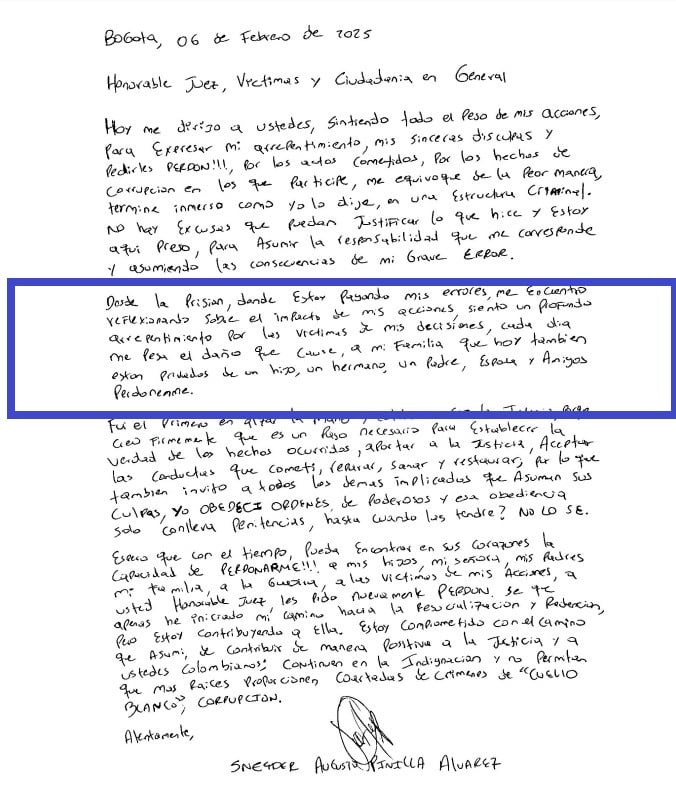 Bogota, 06 de Febrero de 2025
Honorable Juez, Victimas y Ciudadania en General
Hoy me dirijo a ustedes, Sintiendo todo el Peso de mis acciones,
Para Expresar mi arrepentimiento, mis sinceras disculpas y
Pedirles PERDON!!!, Por los actos Cometidos, Por los hechos de
Corrupcion en los que Participe, me equivoque de la Peor manera,
termine inmerso como yo lo dije, en una Estructura Criminal.
No hay Excusas que Puedan Justificar lo que hice y Estoy
aqui Preso, para Asumir la responsabilidad que me corresponde
y asumiendo las consecuencias de mi Grave ERROR.
Desde la Prision, donde Estoy Pagando mis errores, me Encuentro
reflexionando Sobre el impacto de mis acciones, siento un Profundo
arrepentimiento Por las Victimas de mis decisiones, cada dia
me Pesa el daño que Cause, a mi Familia que hoy tambien
estan Privados de un hijo, un hermano, un Padre, Esposo y Amigos
Perdonenme.
Fui el Primero en
Creo Firmemente que es un Paso necesario Para Establecer la
verdad de los hechos ocurridos, aportar a la Justicia, Aceptar
las Conductas que cometi, reparar, Sanar y restaurar, Por lo que
tambien invito a todos los demas implicados que Asuman sus
Culpas, Yo OBEDECI ORDENES de Poderosos y esa obediencia
Solo Conlleva Penitencias, hasta cuando las tendre? NO LO SE.
Espero que con el tiempo, Pueda Encontrar en sus Corazones la
Capacidad de PERDONARME!!! a mis hijos, mi señora, mis Padres
mi Familia, a la Guajira, a las Victimas de mis Acciones, a
usted Honorable Juez, les Pido nuevamente PERDON. Se que
apenas he iniciado mi Camino hacia la Resocializacion y Redencion,
Pero Estoy Contribuyendo a Ella. Estoy Comprometido con el Camino
que Asumi, de Contribuir de manera Positiva a la Justicia y a
ustedes Colombianos; Continuen en la Indignacion y no Permitan
que mas Raices Proporcionen Coartadas de Crimenes de "CUELLO
BLANCO", CORRUPCION.
Atentamente,
SNEYDER AUGUSTO PINILLA ALVAREZ